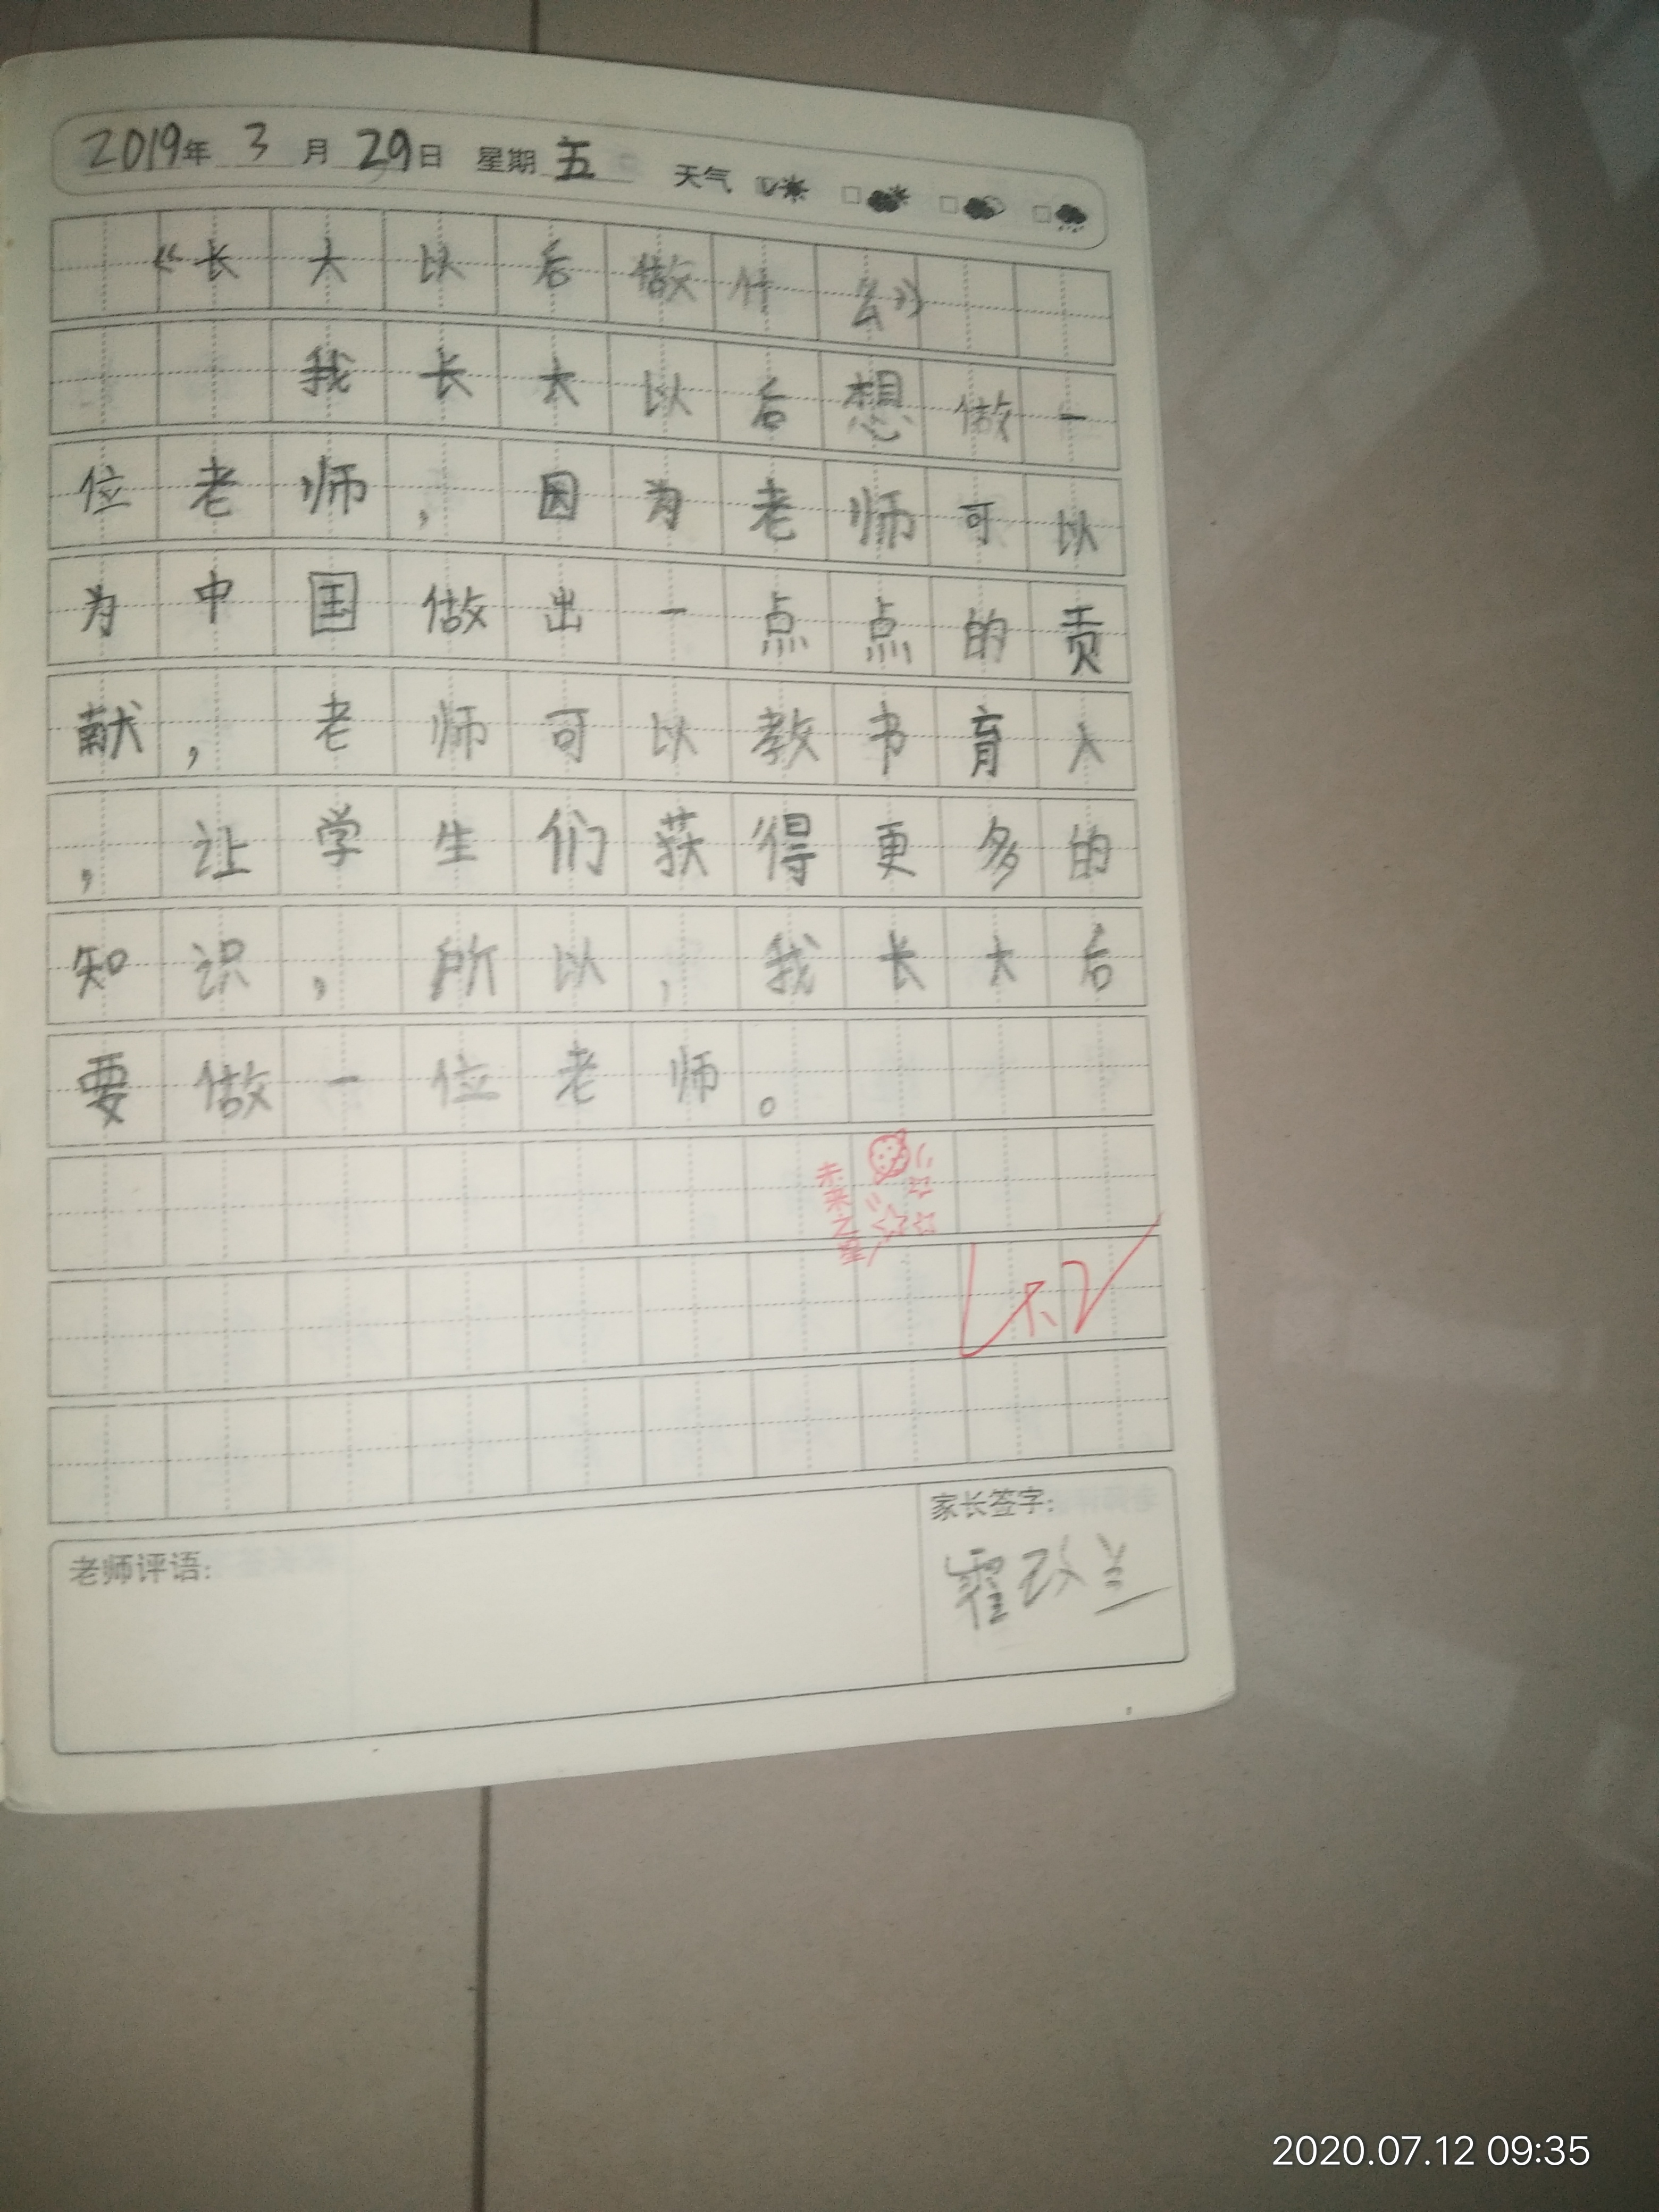 2019年 3 月 29日 星期 五 天气
《长大以后做什么》
我长大以后想做一
位老师，因为老师可以
为中国做出一点点的贡
献，老师可以教书育人
，让学生们获得更多的
知识，所以，我长大后
要做一位老师。
未来之星
老师评语：
家长签字：
2020.07.12 09:35